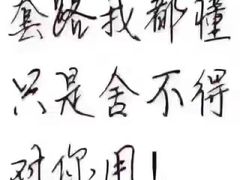 套路我都懂
只是舍不得
对你用!